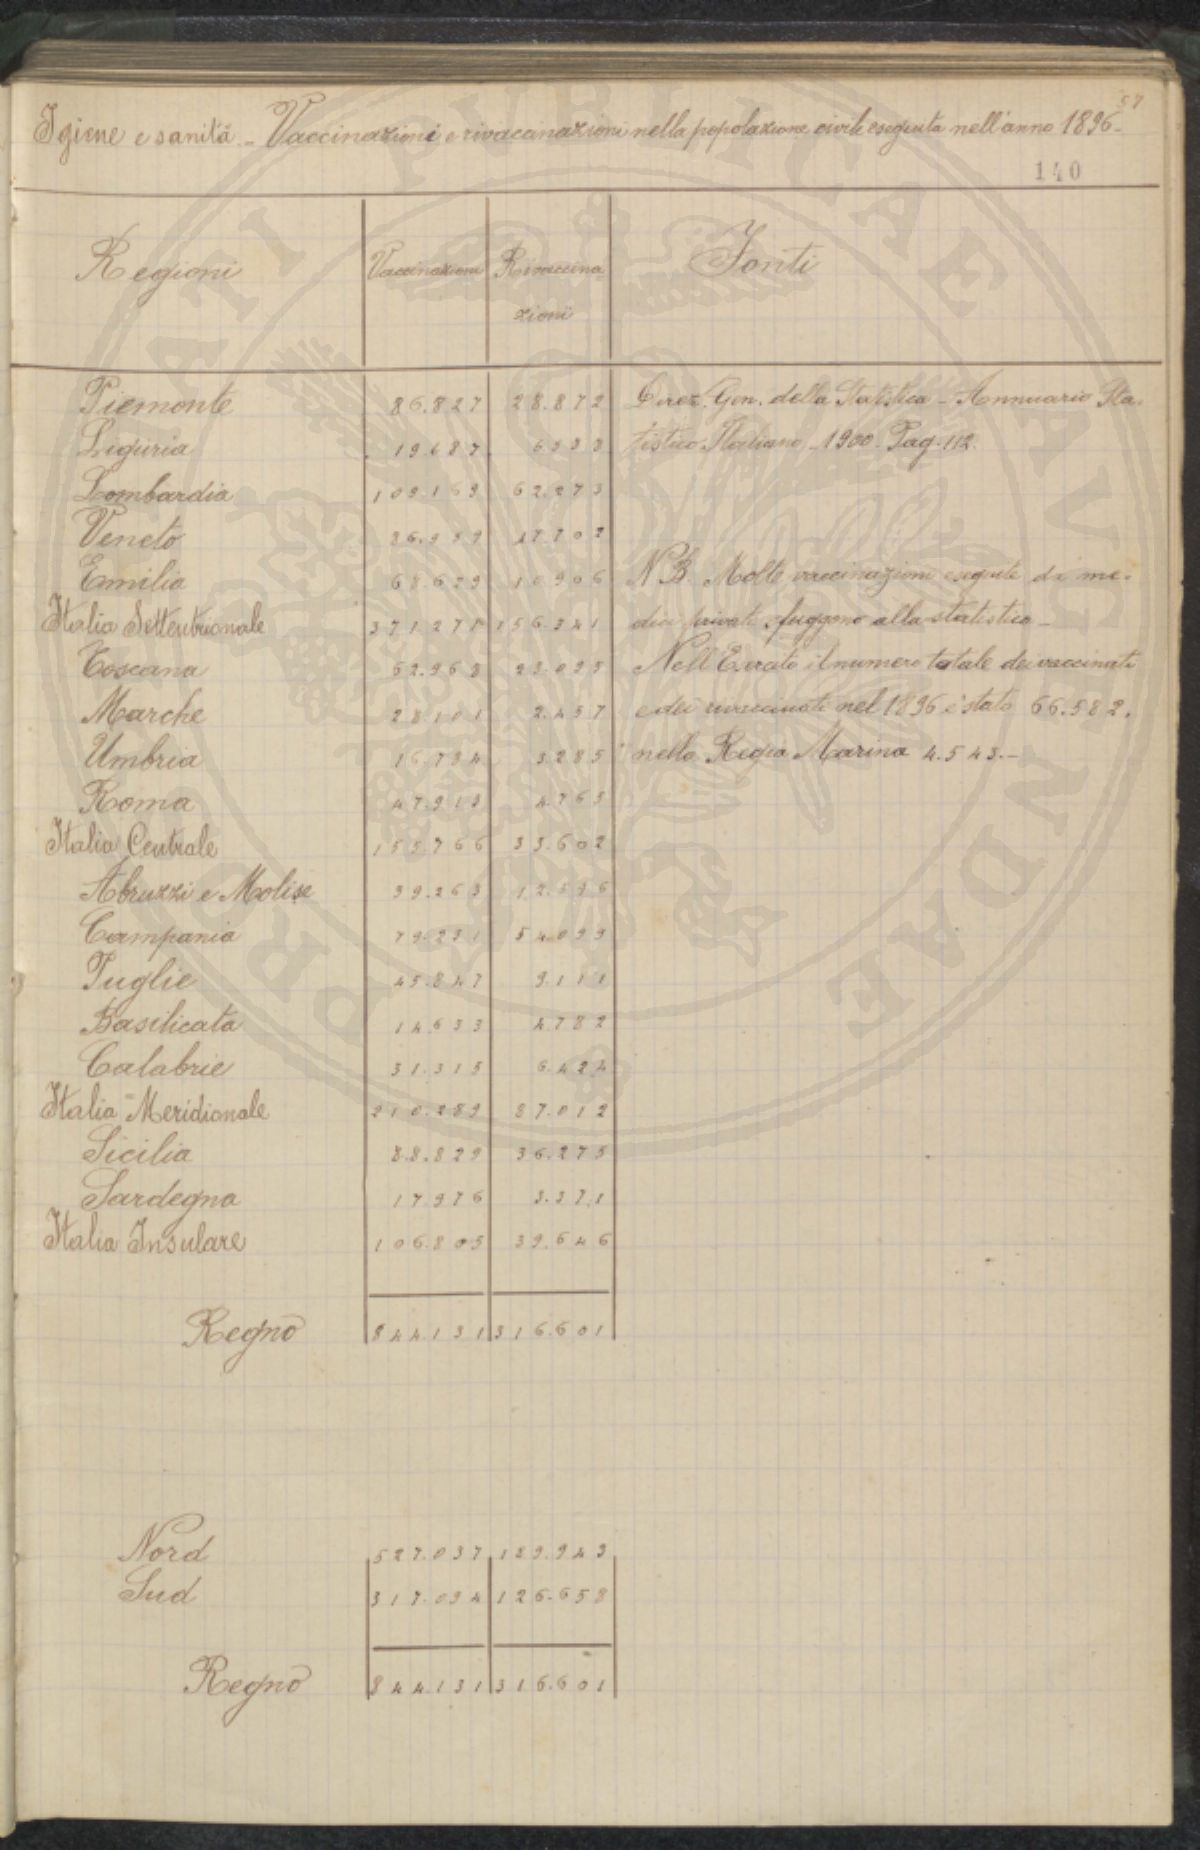 57
Igiene e sanità - Vaccinazioni e rivaccinazioni nella popolazione civile eseguita nell'anno 1896-
140
Regioni Vaccinazioni Rivaccina Fonti
zioni
Piemonte 86.827 28.872 Direz. Gen. della Statistica - Annuario Sta-
Liguria 19.687 6588 tistico Italiano - 1900 - Pag. 112.
Lombardia 109.169 62.273
Veneto 86.959 47.702
Emilia 68.629 10.906 N.B. Molte vaccinazioni eseguite da me-
Italia Settentrionale 371.271 156.341 dici privati sfuggono alla statistica -
Toscana 62.968 23.095 Nell'Esercito il numero totale dei vaccinati
Marche 28.101 2.457 e dei rivaccinati nel 1896 è stato 66.582,
Umbria 16.784 3.285 nella Regia Marina 4.543.-
Roma 47.913 4.765
Italia Centrale 155.766 33.602
Abruzzi e Molise 39.263 12.596
Campania 79.231 54.099
Puglie 45.847 9.111
Basilicata 14.633 4.782
Calabrie 31.315 6.424
Italia Meridionale 210.289 87.012
Sicilia 88.829 36.275
Sardegna 17.976 3.371
Italia Insulare 106.805 39.646
Regno 844.131 316.601
Nord 527.037 189.943
Sud 317.094 126.658
Regno 844.131 316.601